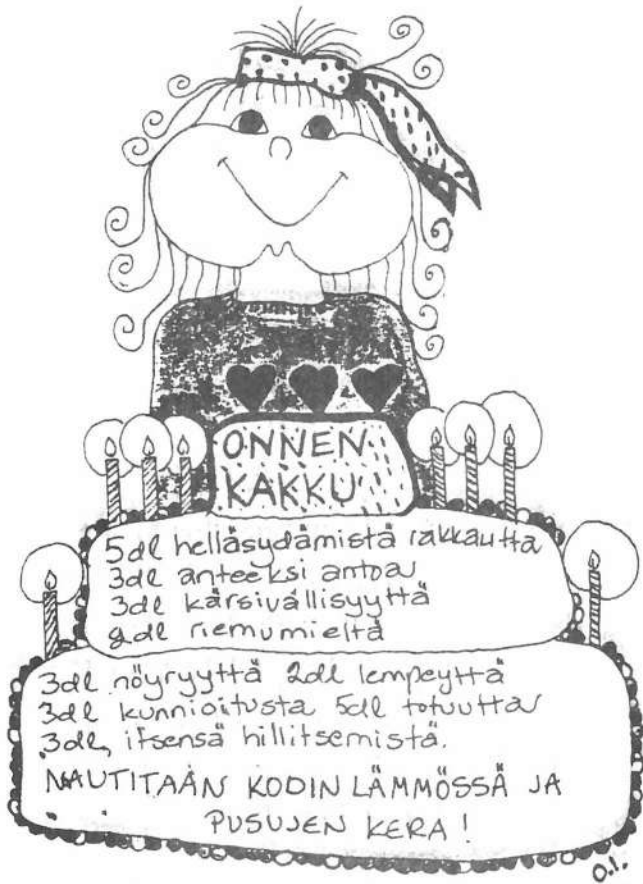 ONNEN
KAKKU
5dl helläsydämistä rakkautta
3dl anteeksi antoa
3dl kärsivällisyyttä
2dl riemumieltä
3dl nöyryyttä 2dl lempeyttä
3dl kunnioitusta 5dl totuutta
3dl, itsensä hillitsemistä.
NAUTITAAN KODIN LÄMMÖSSÄ JA
PUSUJEN KERA!
O.I.